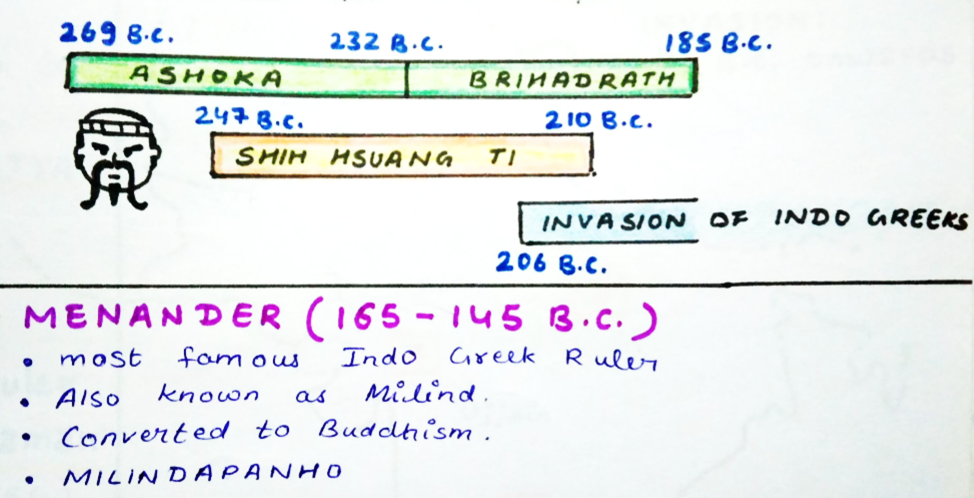 269 B.C. 232 B.C. 185 B.C.
ASHOKA BRIHADRATH
247 B.C. 210 B.C.
SHIH HSUANG TI
INVASION OF INDO GREEKS
206 B.C.
MENANDER (165-145 B.C.)
• most famous Indo Greek Ruler
• Also known as Milind.
• Converted to Buddhism.
• MILINDAPANHO